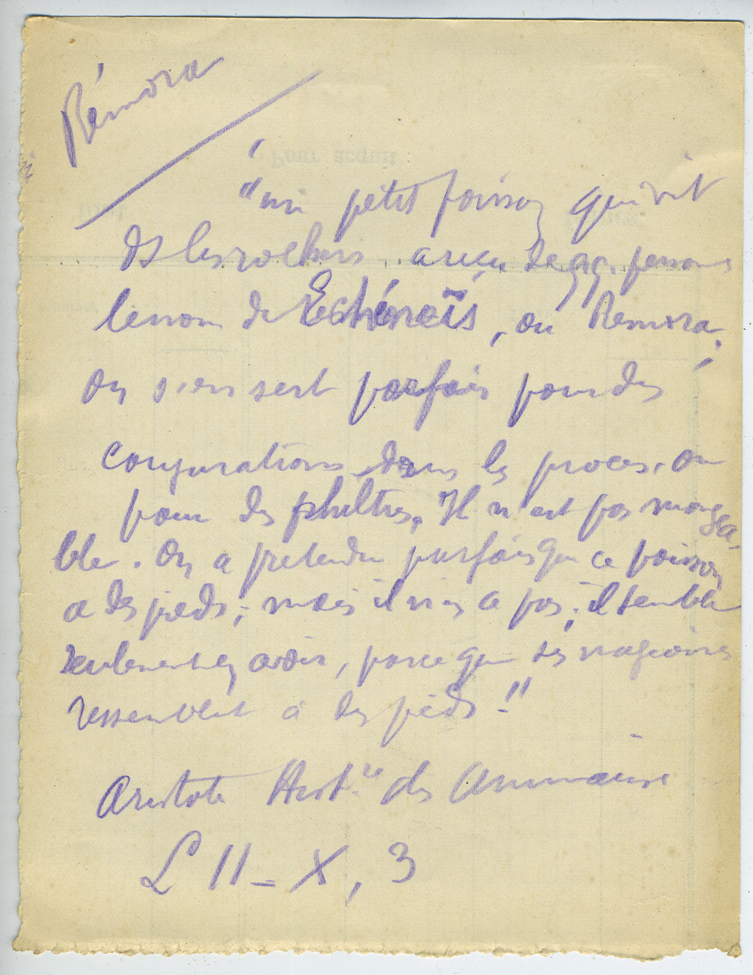 Rémora
"un petit poisson qui vit
ds les rochers a reçu de qq. personnes
le nom de Echénéïs, ou Remora.
On s'en sert parfois pour des
conjurations dans les procès, ou
pour des philtres. Il n'est pas mangea-
ble. On a pretendu parfois que ce poisson
a des pieds; mais il n'en a pas; il semble
seulement en avoir, parce que ses nageoires
ressemblent à des pieds."
Aristote Hist.re des Animaux
L II - X, 3
Pour acquit :